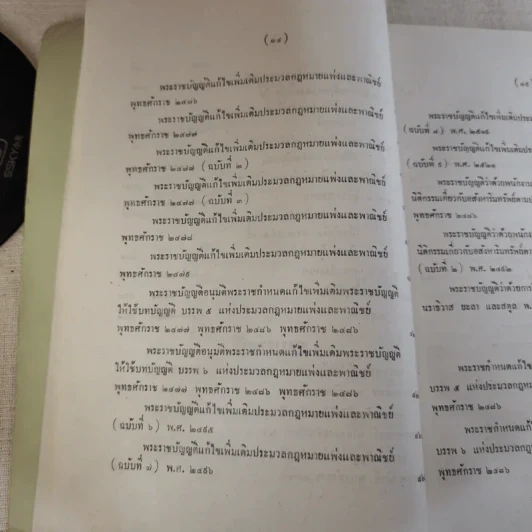 (๑๔)
พระราชบัญญัติแก้ไขเพิ่มเติมประมวลกฎหมายแพ่งและพาณิชย์
พุทธศักราช ๒๔๗๖
พระราชบัญญัติแก้ไขเพิ่มเติมประมวลกฎหมายแพ่งและพาณิชย์
พุทธศักราช ๒๔๗๗
พระราชบัญญัติแก้ไขเพิ่มเติมประมวลกฎหมายแพ่งและพาณิชย์
พุทธศักราช ๒๔๗๗ (ฉบับที่ ๒)
พระราชบัญญัติแก้ไขเพิ่มเติมประมวลกฎหมายแพ่งและพาณิชย์
พุทธศักราช ๒๔๗๗ (ฉบับที่ ๓)
พระราชบัญญัติแก้ไขเพิ่มเติมประมวลกฎหมายแพ่งและพาณิชย์
พุทธศักราช ๒๔๗๘
พระราชบัญญัติแก้ไขเพิ่มเติมประมวลกฎหมายแพ่งและพาณิชย์
พุทธศักราช ๒๔๗๙
พระราชบัญญัติอนุมัติพระราชกำหนดแก้ไขเพิ่มเติมพระราชบัญญัติ
ให้ใช้บทบัญญัติ บรรพ ๕ แห่งประมวลกฎหมายแพ่งและพาณิชย์
พุทธศักราช ๒๔๗๗ พุทธศักราช ๒๔๘๖ พุทธศักราช ๒๔๘๖
พระราชบัญญัติอนุมัติพระราชกำหนดแก้ไขเพิ่มเติมพระราชบัญญัติ
ให้ใช้บทบัญญัติ บรรพ ๖ แห่งประมวลกฎหมายแพ่งและพาณิชย์
พุทธศักราช ๒๔๗๗ พุทธศักราช ๒๔๘๖ พุทธศักราช ๒๔๘๖
พระราชบัญญัติแก้ไขเพิ่มเติมประมวลกฎหมายแพ่งและพาณิชย์
(ฉบับที่ ๖) พ.ศ. ๒๔๙๕
พระราชบัญญัติแก้ไขเพิ่มเติมประมวลกฎหมายแพ่งและพาณิชย์
(ฉบับที่ ๗) พ.ศ. ๒๔๙๖
(๑๕
พระราชบัญญัติแก้ไขเพิ่มเติมประ
(ฉบับที่ ๘) พ.ศ.
พระราชบัญญัติแก้ไขเพิ่มเติมประ
(ฉบับที่ ๙) พ.ศ. ๒๕๒๑
พระราชบัญญัติว่าด้วยพนักงาน
นิติกรรมเกี่ยวกับอสังหาริมทรัพย์
พุทธศักราช ๒๔๘๖
พระราชบัญญัติว่าด้วยพนัก
นิติกรรมเกี่ยวกับอสังหาริมทรัพย์ตาม
(ฉบับที่ ๒) พ.ศ. ๒๔๙๒
พระราชบัญญัติว่าด้วยการ
นราธิวาส ยะลา และสตูล พ.
พระราชกำหนดแก้ไข
บรรพ ๕ แห่งประมวลกฎหมาย
พุทธศักราช ๒๔๘๖
พระราชกำหนดแก้
บรรพ ๖ แห่งประมวลกฎหมาย
พุทธศักราช ๒๔๘๖